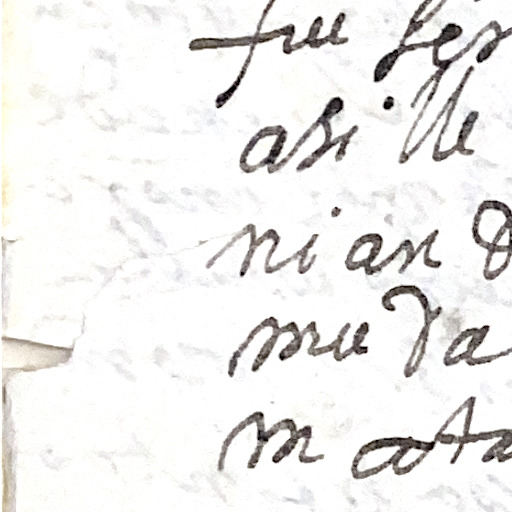 fue ser
asi lle
nian d
muda
mata